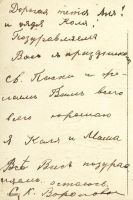 Дорогая тетя Аня!
и дядя Коля!
Поздравляем
Вас с праздником
Св. Пасхи и же-
лаем Вам всего
всего хорошаго
Я Коля и Маша
Всѣ Васъ поздрав
остаюсь
Воробьева